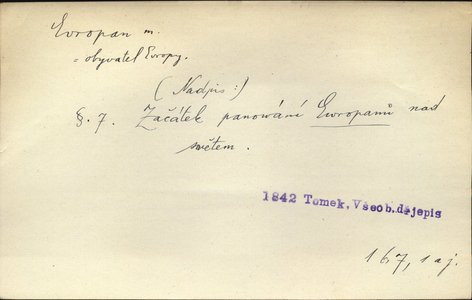 Evropan m.
= obyvatel Evropy.
(Nadpis:)
§. 7. Začátek panowání Ewropanů nad
swětem.
1842 Tomek, Všeob. dějepis
167, 1 a j.